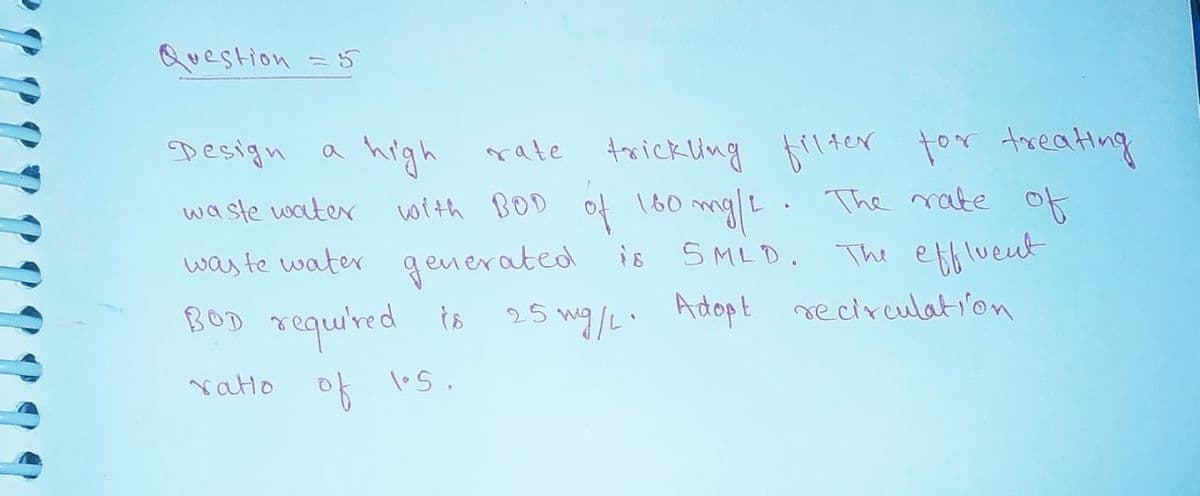 Question = 5
Design a high rate trickling filter for treating
waste water with BOD of 160 mg/L. The rate of
waste water generated is 5 MLD. The effluent
BOD required is 25 mg/L. Adopt recirculation
ratio of 1.5.